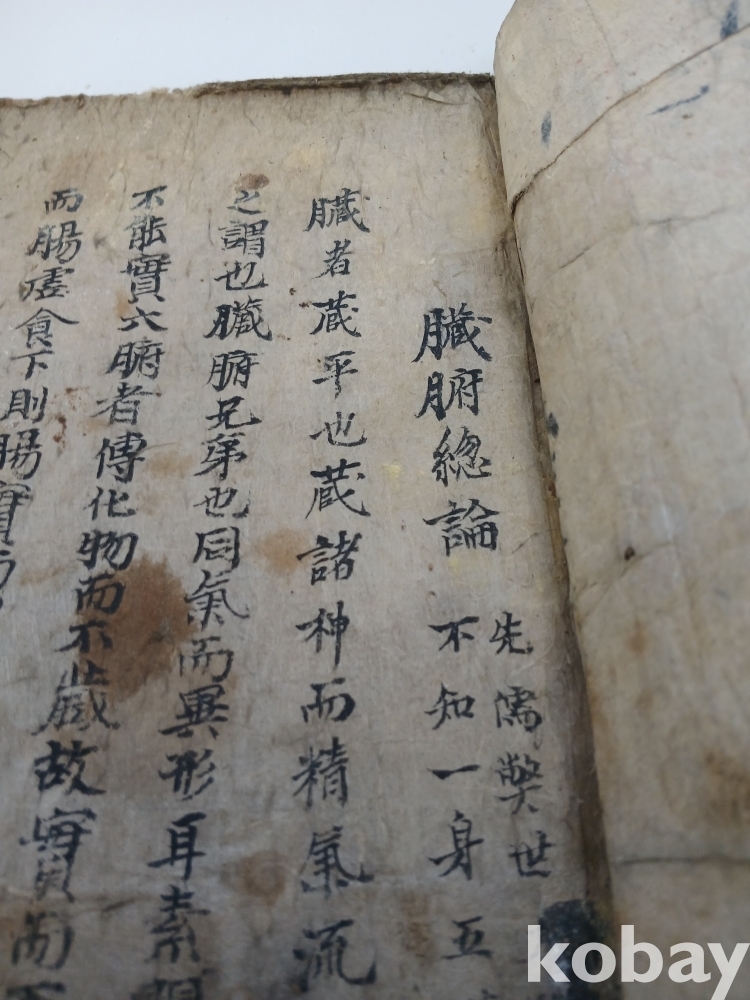 臓腑總論
先儒獘世
不知一身五
臓者藏乎也藏諸神而精氣流
之謂也臓腑兄弟也同氣而異形耳素
不能實六腑者傳化物而不藏故實而
而腸虛食下則腸實而
kobay